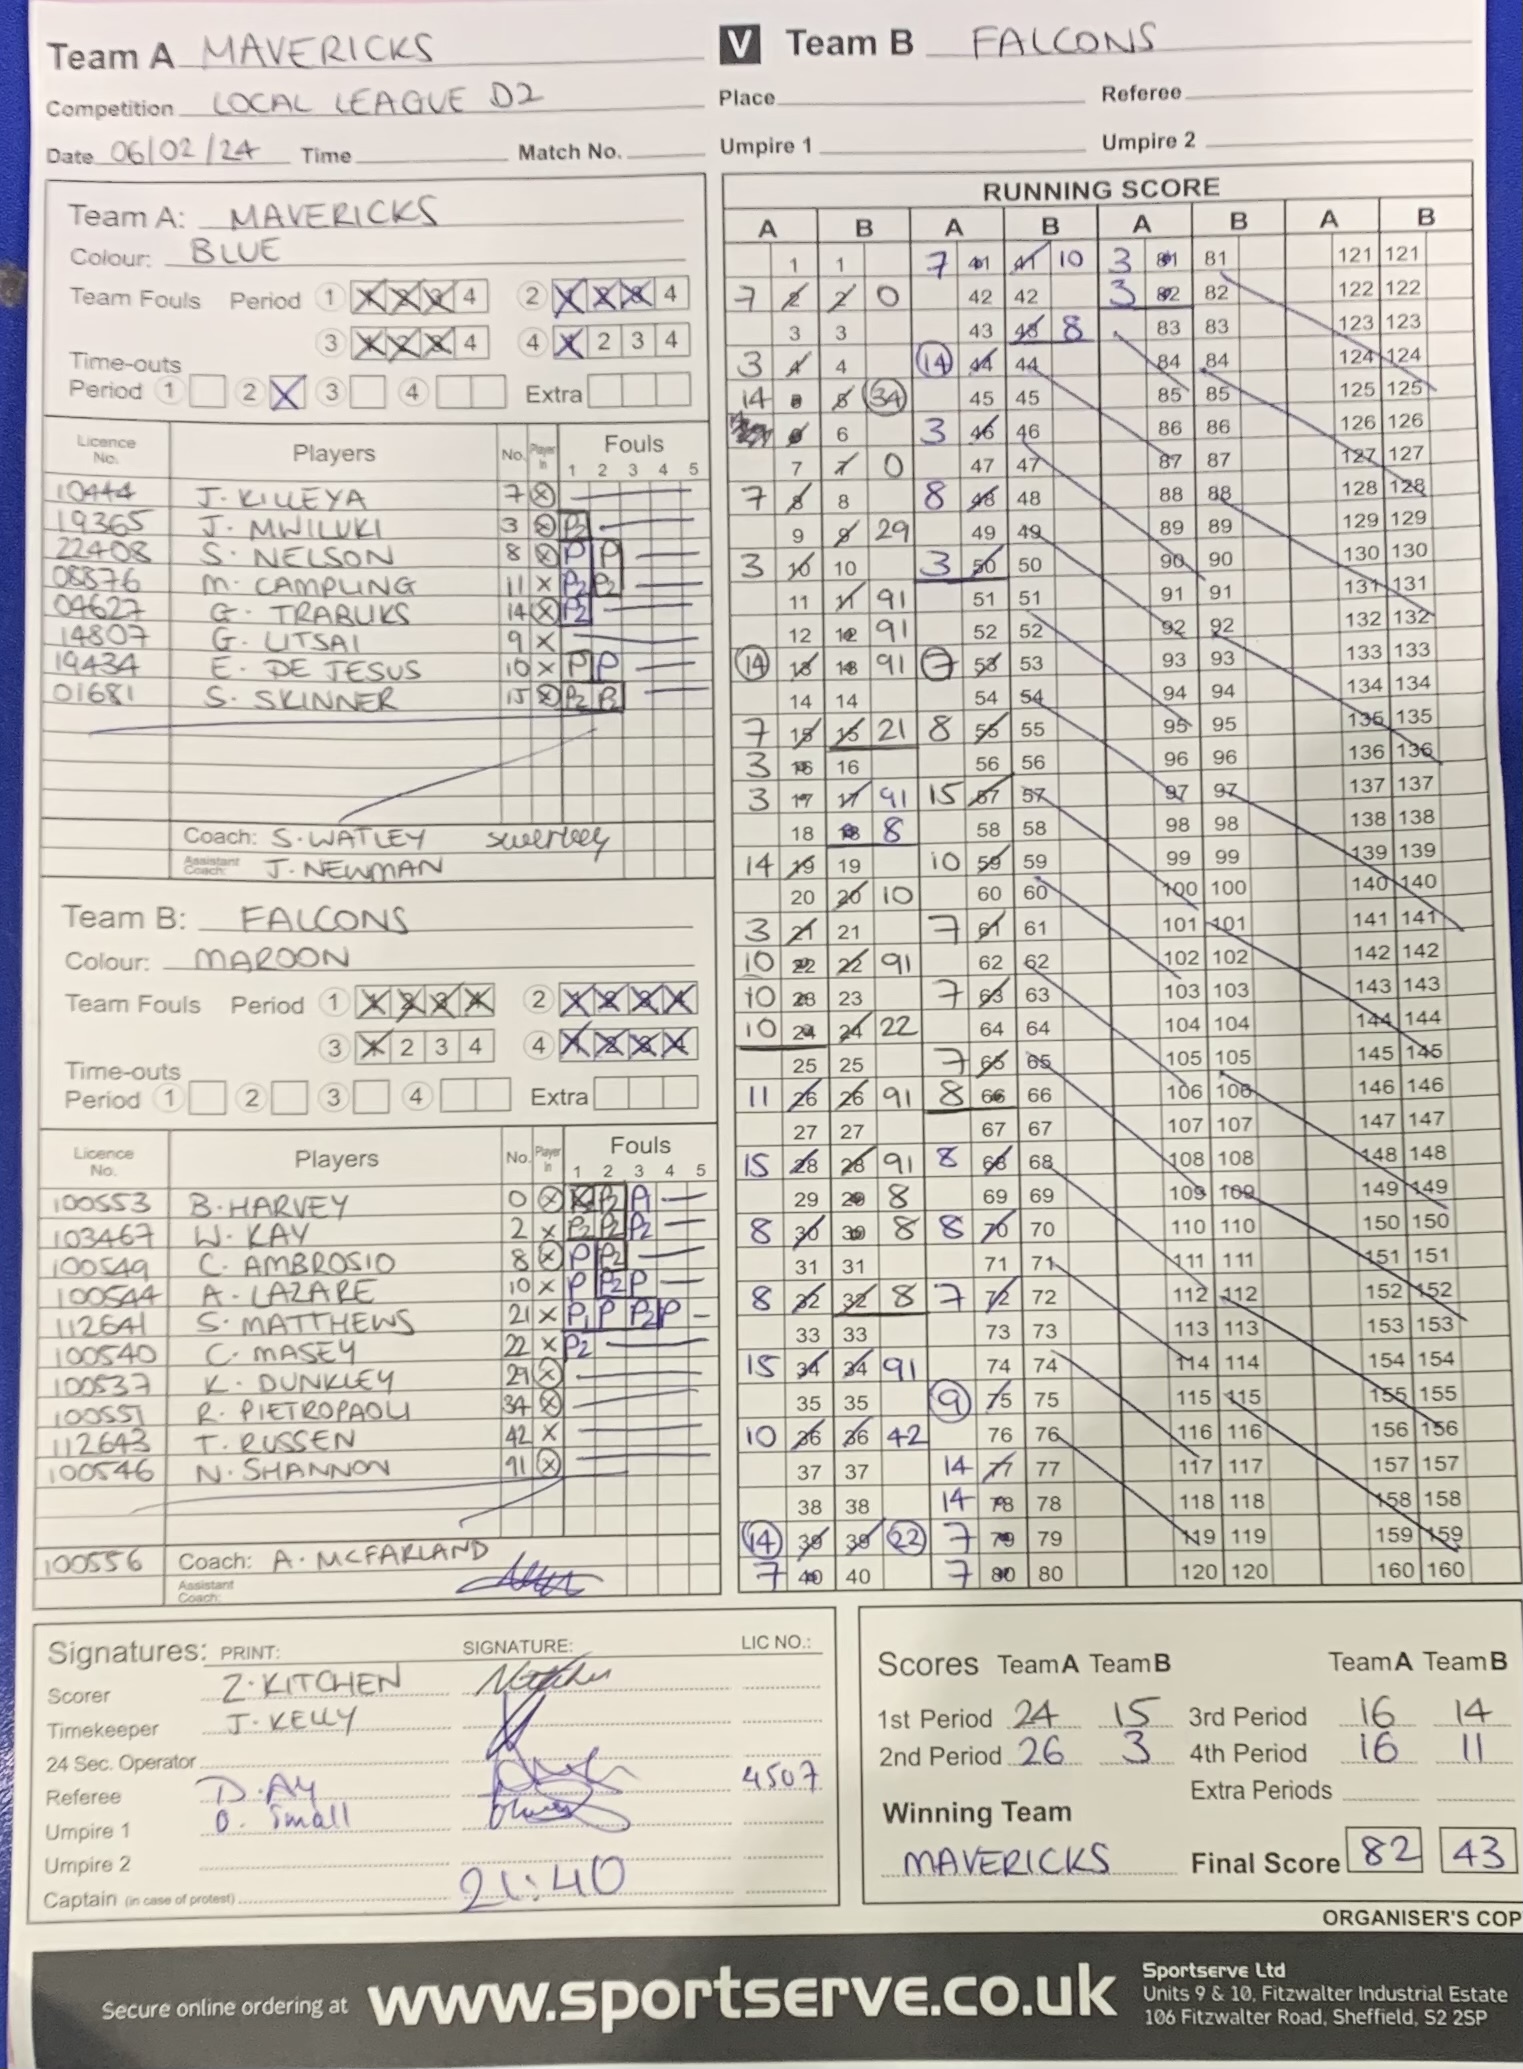 Team A MAVERICKS V Team B FALCONS
Competition LOCAL LEAGUE D2 Place Referee
Date 06/02/24 Time Match No. Umpire 1 Umpire 2
Team A: MAVERICKS
Colour: BLUE
Team Fouls Period 1 1 2 3 4 2 1 2 3 4
3 1 2 3 4 4 1 2 3 4
Time-outs
Period 1 2 X 3 4 Extra
Licence No. Players No. Player in Fouls 1 2 3 4 5
10444 J. KILLEYA 7 X
19365 J. MWILUKI 3 X P2
22408 S. NELSON 8 X P P
08876 M. CAMPLING 11 X P2 P2
04627 G. TRABUKS 14 X P2
14807 G. LITSAI 9 X
19434 E. DE JESUS 10 X P P
01681 S. SKINNER 15 X P2 P2
Coach: S. WATLEY
Assistant Coach: J. NEWMAN
Team B: FALCONS
Colour: MAROON
Team Fouls Period 1 1 2 3 4 2 1 2 3 4
3 1 2 3 4 4 1 2 3 4
Time-outs
Period 1 2 3 4 Extra
Licence No. Players No. Player in Fouls 1 2 3 4 5
100553 B. HARVEY 0 X P2 P1
103467 W. KAY 2 X P2 P2 P2
100549 C. AMBROSIO 8 X P P2
100544 A. LAZARE 10 X P P2 P
112641 S. MATTHEWS 21 X P1 P P2 P
100540 C. MASEY 22 X P2
100537 K. DUNKLEY 29 X
100551 R. PIETROPAOLI 34 X
112643 T. RUSSEN 42 X
100546 N. SHANNON 91 X
100556 Coach: A. MCFARLAND
Assistant Coach:
RUNNING SCORE
A B A B A B A B
1 1 7 41 41 10 3 81 81 121 121
7 2 2 0 42 42 3 82 82 122 122
3 3 43 43 8 83 83 123 123
3 4 4 14 44 44 84 84 124 124
14 5 5 34 45 45 85 85 125 125
6 6 3 46 46 86 86 126 126
7 7 0 47 47 87 87 127 127
7 8 8 8 48 48 88 88 128 128
9 9 29 49 49 89 89 129 129
3 10 10 3 50 50 90 90 130 130
11 11 91 51 51 91 91 131 131
12 12 91 52 52 92 92 132 132
14 13 13 91 7 53 53 93 93 133 133
14 14 54 54 94 94 134 134
7 15 15 21 8 55 55 95 95 135 135
3 16 16 56 56 96 96 136 136
3 17 17 91 15 57 57 97 97 137 137
18 18 8 58 58 98 98 138 138
14 19 19 10 59 59 99 99 139 139
20 20 10 60 60 100 100 140 140
3 21 21 7 61 61 101 101 141 141
10 22 22 91 62 62 102 102 142 142
10 23 23 7 63 63 103 103 143 143
10 24 24 22 64 64 104 104 144 144
25 25 7 65 65 105 105 145 145
11 26 26 91 8 66 66 106 106 146 146
27 27 67 67 107 107 147 147
15 28 28 91 8 68 68 108 108 148 148
29 29 8 69 69 109 109 149 149
8 30 30 8 8 70 70 110 110 150 150
31 31 71 71 111 111 151 151
8 32 32 8 7 72 72 112 112 152 152
33 33 73 73 113 113 153 153
15 34 34 91 74 74 114 114 154 154
35 35 9 75 75 115 115 155 155
10 36 36 42 76 76 116 116 156 156
37 37 14 77 77 117 117 157 157
38 38 14 78 78 118 118 158 158
14 39 39 22 7 79 79 119 119 159 159
7 40 40 7 80 80 120 120 160 160
Signatures: PRINT: SIGNATURE: LIC NO.:
Scorer Z. KITCHEN
Timekeeper J. KELLY
24 Sec. Operator
Referee D. AY 4507
Umpire 1 O. Small
Umpire 2
Captain (in case of protest) 21:40
Scores Team A Team B Team A Team B
1st Period 24 15 3rd Period 16 14
2nd Period 26 3 4th Period 16 11
Extra Periods
Winning Team
MAVERICKS Final Score 82 43
ORGANISER'S COP
Secure online ordering at www.sportserve.co.uk
Sportserve Ltd
Units 9 & 10, Fitzwalter Industrial Estate
106 Fitzwalter Road, Sheffield, S2 2SP